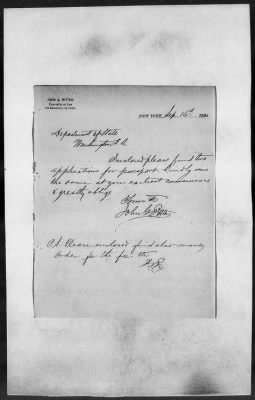 JOHN C. RITTER,
Counselor at Law
NEW YORK, Sep. 16th 189
Department of State
Washington D.C.
Enclosed please find two
applications for passport. Kindly
the same at your earliest convenience
& greatly oblige
Yours Etc
John C. Ritter
P.S. Please enclosed find also money
order for the fee